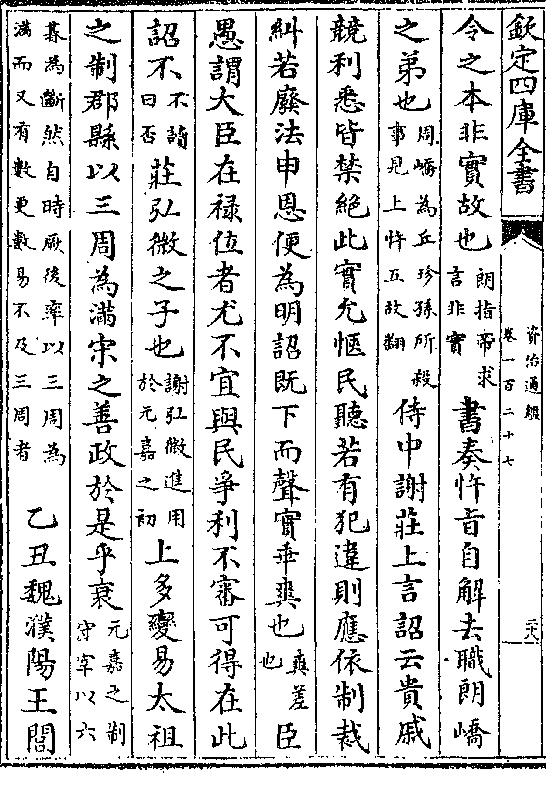 欽定四庫全書
資治通鑑
卷一百二十七
二十八
令之本非實故也朗指帝求言非實書奏忤旨自解去職朗嶠
之弟也周嶠為丘珍孫所殺事見上忤五故翻侍中謝莊上言詔云貴戚
競利悉皆禁絶此實允愜民聽若有犯違則應依制裁
糾若廢法申恩便為明詔既下而聲實乖爽也爽差也臣
愚謂大臣在祿位者尤不宜與民爭利不審可得在此
詔不不讀曰否莊弘微之子也謝弘微進用於元嘉之初上多變易太祖
之制郡縣以三周為滿宋之善政於是乎衰元嘉之制守宰以六
朞為斷然自時厥後率以三周為滿而又有數更數易不及三周者乙丑魏濮陽王閭